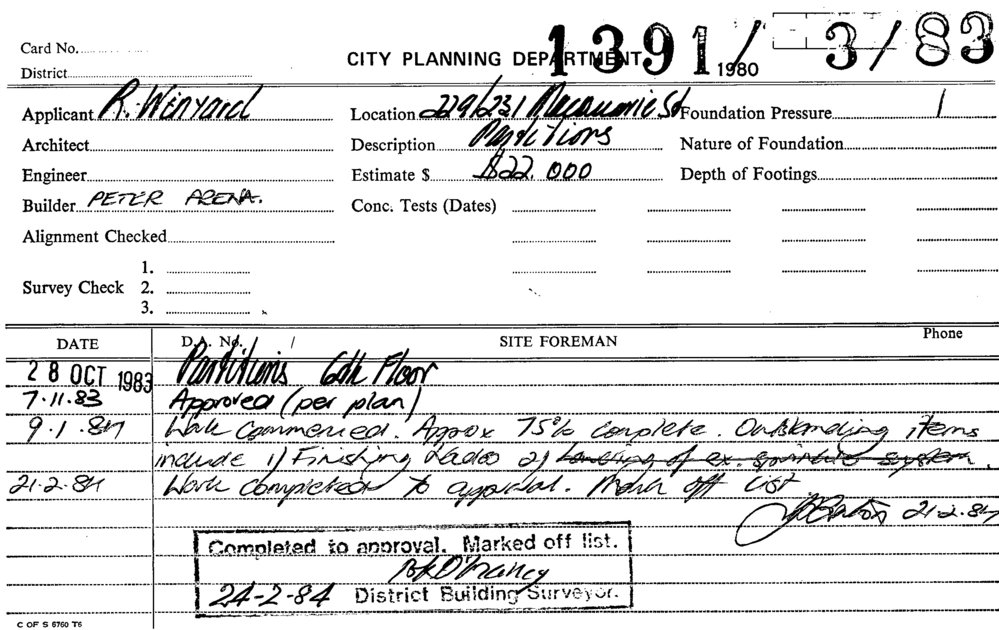 Card No.
CITY PLANNING DEPARTMENT
1391/ 3/83
1980
District
Applicant R. Winyard
Location 229/231 Macquarie St
Foundation Pressure
Architect
Description Partitions
Nature of Foundation
Engineer
Estimate $ $22.000
Depth of Footings
Builder PETER ARENA.
Conc. Tests (Dates)
Alignment Checked
Survey Check 1.
2.
3.
DATE D.A. No. / SITE FOREMAN Phone
28 OCT 1983 Partitions 6th Floor
7.11.83 Approved (per plan)
9.1.84 Work Commenced. Approx 75% complete. Outstanding items
include 1) Finishing 2) Lowering of ex. sprinkler system.
21.2.84 Work completed to approval. off list
21.2.84
Completed to approval. Marked off list.
24-2-84 District Building Surveyor.
C OF S 6760 T6